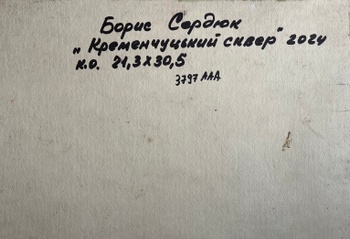 Борис Сердюк
„Кременчуцький сквер" 2024
к.о. 21,3x30,5
3797 ААА